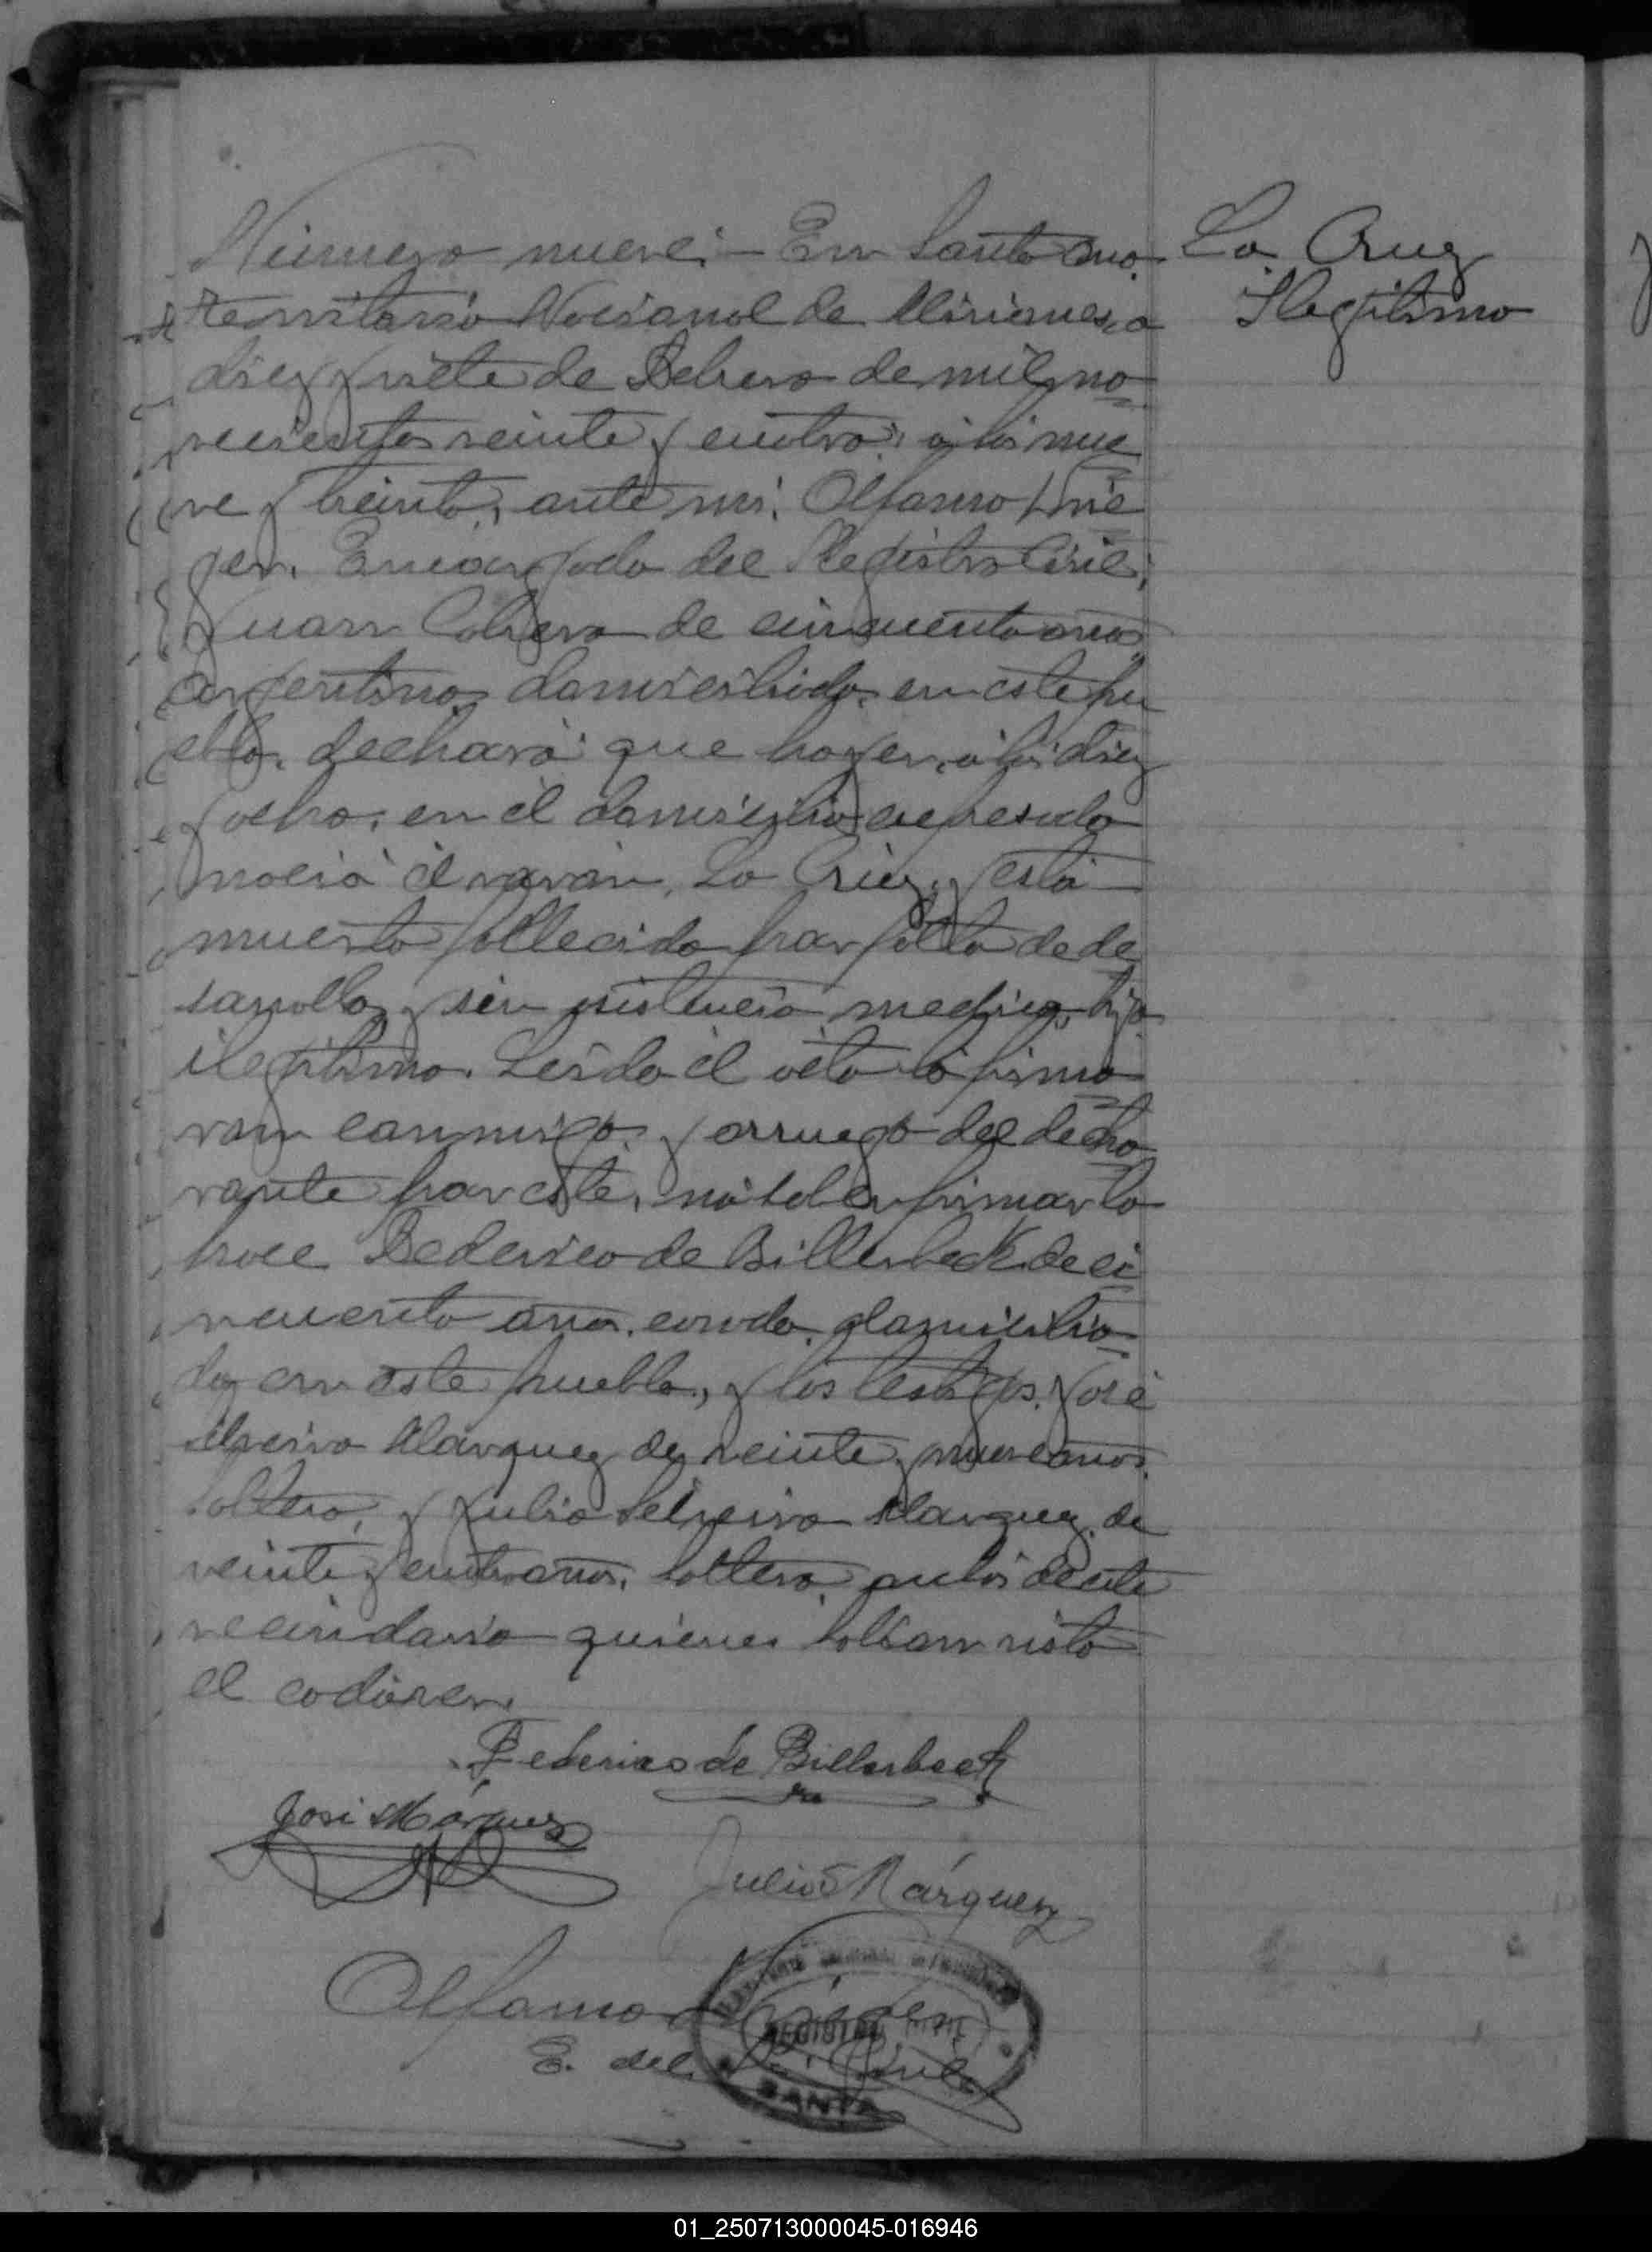 Número nueve: En Santa Ana.
territorio Nacional de Misiones, a
diez y siete de Febrero de mil no-
vecientos veinte y cuatro, a las nue
ve y treinta, ante mi. Encargado del Registro Civil,
Juan Cabrera de cincuenta anos
argentino, domiciliado, en este pu
eblo, declaró: que hayer, a las diez
y ocho, en el domicilio expresado
nació el varón, La Cruz, y está
muerto fallecido por falta de de
sarrollo, y sin asistencia medica, hijo
ilegitimo. Leida el acta la firma
ron conmigo, y arruego del decla
rante por este, no saber firmar lo
hace Federico de Billerbeck, de ci
ncuenta anos, domicilia-
do en este pueblo, y los testigos, José
Marquez de veinte y nueve anos,
soltero, y Julio Marquez, de
veinte y cuatro anos, soltero, ambos de este
vecindario quienes habian visto
el cadáver.
La Cruz
Ilegitimo
Federico de Billerbeck
José Márquez
Julio S Márquez
E. del R. Civil
REGISTRO CIVIL
SANTA
01_250713000045-016946